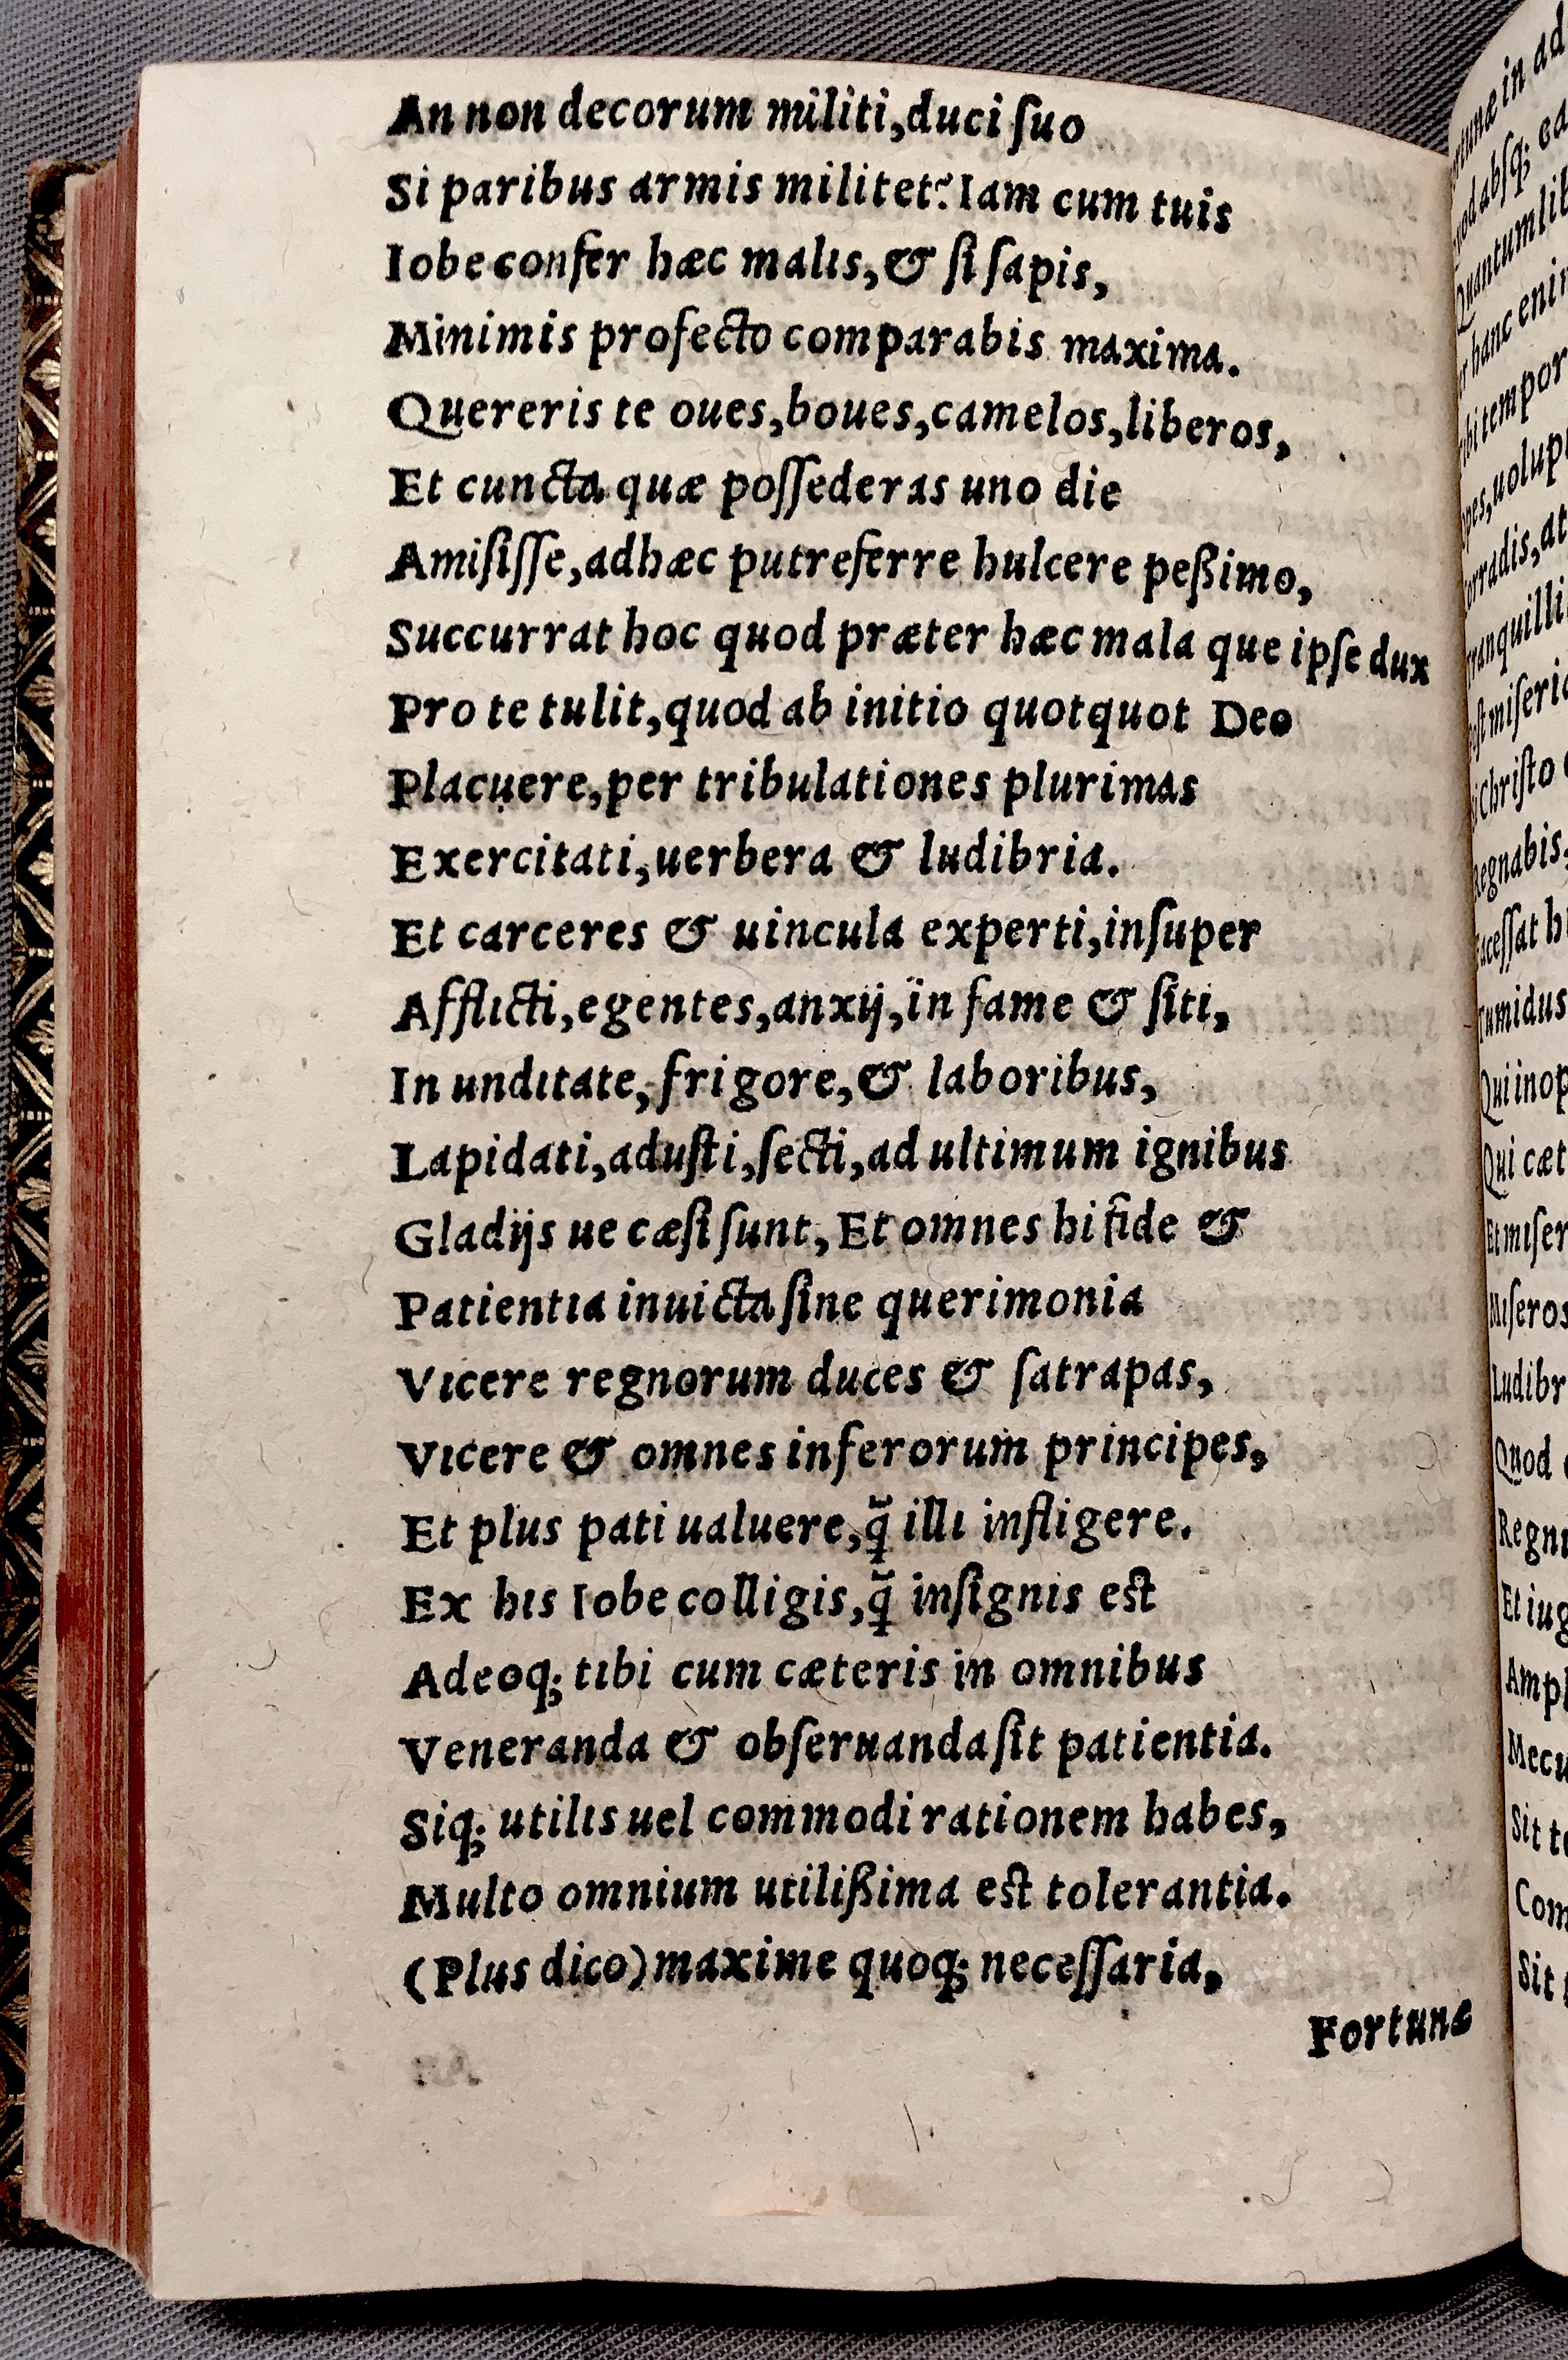 An non decorum militi,duci ſuo
Si paribus armis militet? Iam cum tuis
Iobe confer hæc malis,& ſi ſapis,
Minimis profecto comparabis maxima.
Quereris te oues,boues,camelos,liberos,
Et cuncta quæ poſſederas uno die
Amiſiſſe,adhæc putreferre hulcere peßimo,
Succurrat hoc quod præter hæc mala que ipſe dux
Pro te tulit,quod ab initio quotquot Deo
Placuere,per tribulationes plurimas
Exercitati,uerbera & ludibria.
Et carceres & uincula experti,inſuper
Afflicti,egentes,anxij,in fame & ſiti,
In unditate,frigore,& laboribus,
Lapidati,aduſti,ſecti,ad ultimum ignibus
Gladijs ue cæſi ſunt,Et omnes hi fide &
Patientia inuicta ſine querimonia
Vicere regnorum duces & ſatrapas,
Vicere & omnes inferorum principes,
Et plus pati ualuere,q̃ illi infligere.
Ex his Iobe colligis,q̃ inſignis est
Adeoq; tibi cum cæteris in omnibus
Veneranda & obſeruanda ſit patientia.
Siq; utilis uel commodi rationem habes,
Multo omnium utilißima est tolerantia.
(Plus dico)maxime quoq; neceſſaria,
Fortunæ